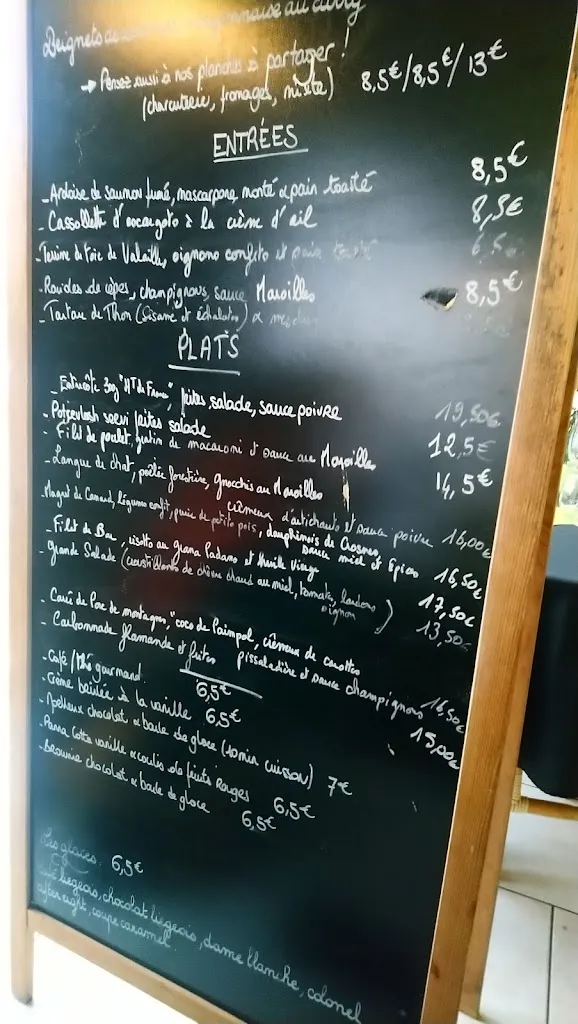 Beignets de mayonnaise au curry
→ Pensez aussi à nos planches à partager !
(charcuterie, fromages, mixte) 8,5€/8,5€/13€
ENTRÉES
- Ardoise de saumon fumé, mascarpone monté & pain toasté 8,5€
- Cassollette d'escargots à la crème d'ail 8,5€
- Terrine de Foie de Volaille, oignons confits et pain toasté 6,5
- Ravioles de cèpes, champignons, sauce Maroilles 8,5€
- Tartare de Thon (Sésame et échalotes) &
PLATS
- Entrecôte 300g "HT de France", frites salade, sauce poivre 19,50€
- Potjevlesh servi frites salade 12,5€
- Filet de poulet, gratin de macaroni et sauce au Maroilles 14,5€
- Langue de chat, poêlée forestière, gnocchis au Maroilles
crémeux d'artichauts et sauce poivre 16,00€
- Magret de Canard, légumes confit, purée de petits pois, dauphinois de Crosnes
sauce miel et Epices 16,50€
- Filet de Bar, risotto au Grana Padano et Huile Vierge 17,50€
- Grande Salade (croustillants de chèvre chaud au miel, tomate, lardons oignon) 13,50€
- Carré de Porc de montagnes, "coco de Paimpol, crémeux de carottes
pissaladière et sauce champignons 16,50€
- Carbonnade flamande et frites 15,00€
- Café / thé gourmand 6,5€
- Crème brûlée à la vanille 6,5€
- Moelleux chocolat & boule de glace (10min cuisson) 7€
- Panna Cotta vanille & coulis de fruits Rouges 6,5€
- Brownie chocolat & boule de glace 6,5€
Les glaces : 6,5€
café liégeois, chocolat liégeois, dame blanche, colonel
after eight, coupe caramel